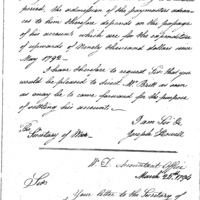 period, the admission of the paymaster advan-
ces to him therefore depends on the passage
of his account which are for the expenditure
of upwards of Ninety thousand dollars since
May 1792 -
I have therefore to request Sir that you
would be pleased to direct Mr. Britt as soon
as may be to come forward for the purpose
of settling his account.
I am Sir &c
The
Secretary of War.
Joseph Howell
W. D. Accountant Office
March 25th 1794
Sir
Your letter to the Secretary of